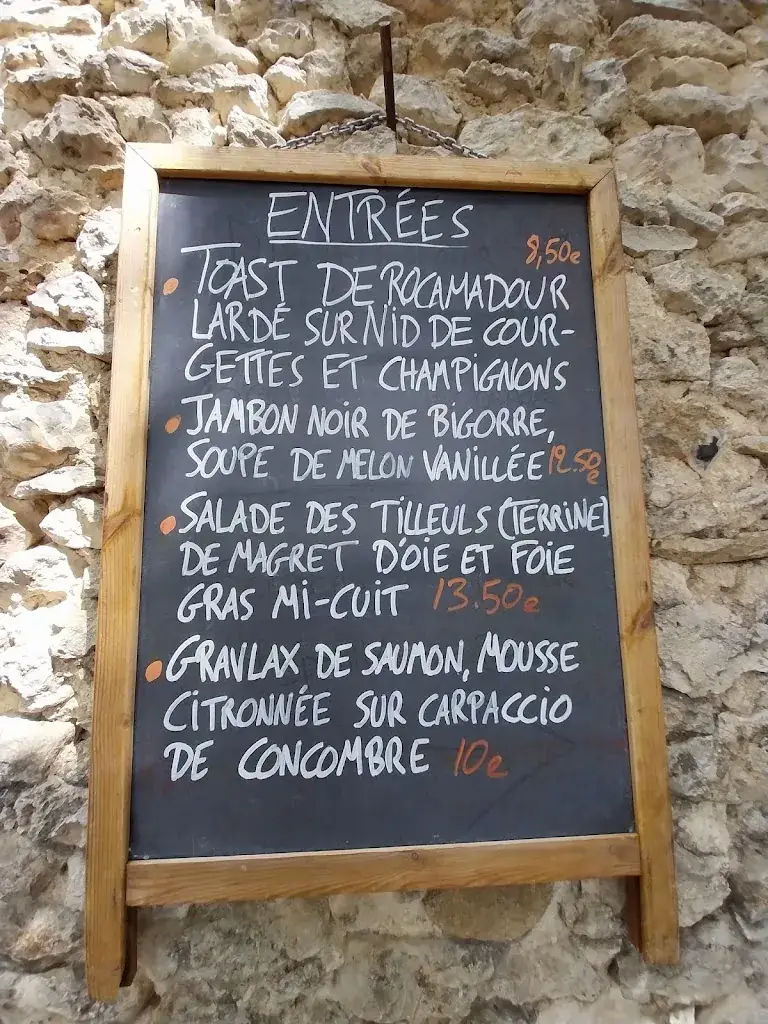 ENTRÉES
8,50€
• TOAST DE ROCAMADOUR
LARDÉ SUR NID DE COUR-
GETTES ET CHAMPIGNONS
• JAMBON NOIR DE BIGORRE,
SOUPE DE MELON VANILLÉE 12.50€
• SALADE DES TILLEULS (TERRINE)
DE MAGRET D'OIE ET FOIE
GRAS MI-CUIT 13.50€
• GRAVLAX DE SAUMON, MOUSSE
CITRONNÉE SUR CARPACCIO
DE CONCOMBRE 10€